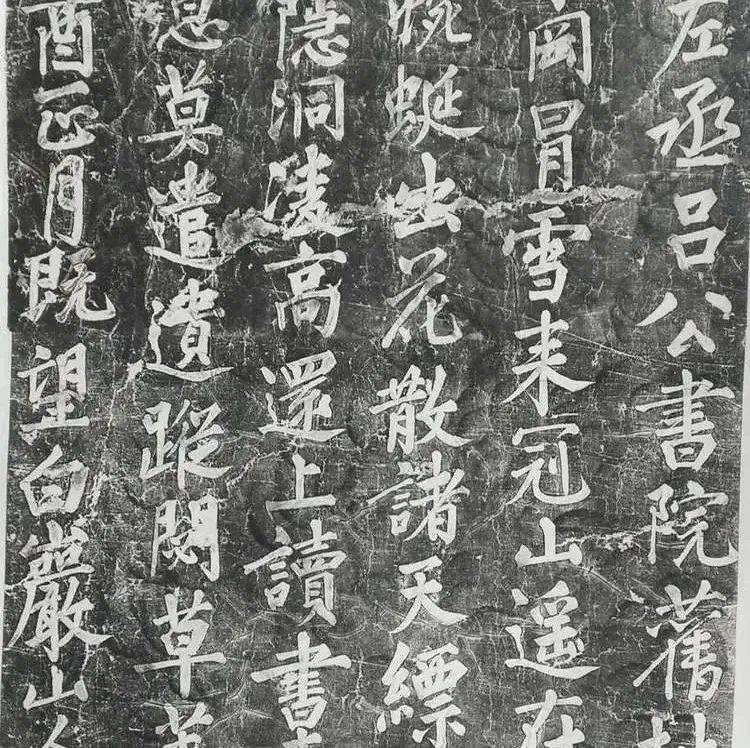 左丞呂公書院舊
岡冒雪来冠山遥在
蜿蜒出花散諸天縹
隱洞淩高還上讀書
息莫遣遺蹤閟草莱
酉正月既望白巖山人